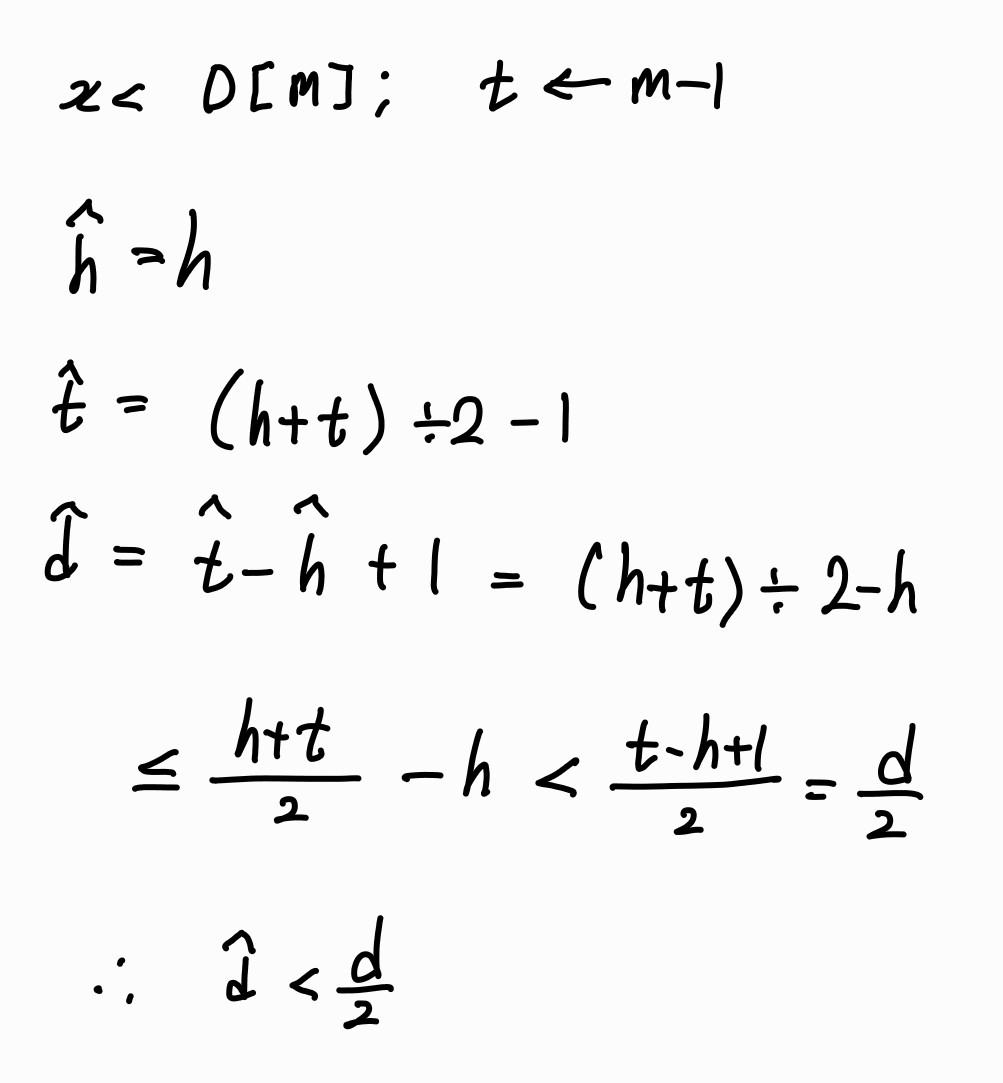 x < D[m]; t ← m-1
ĥ = h
t̂ = (h+t) ÷2 - 1
d̂ = t̂ - ĥ + 1 = (h+t) ÷ 2-h
≤ \frac{h+t}{2} - h < \frac{t-h+1}{2} = \frac{d}{2}
∴ d̂ < \frac{d}{2}